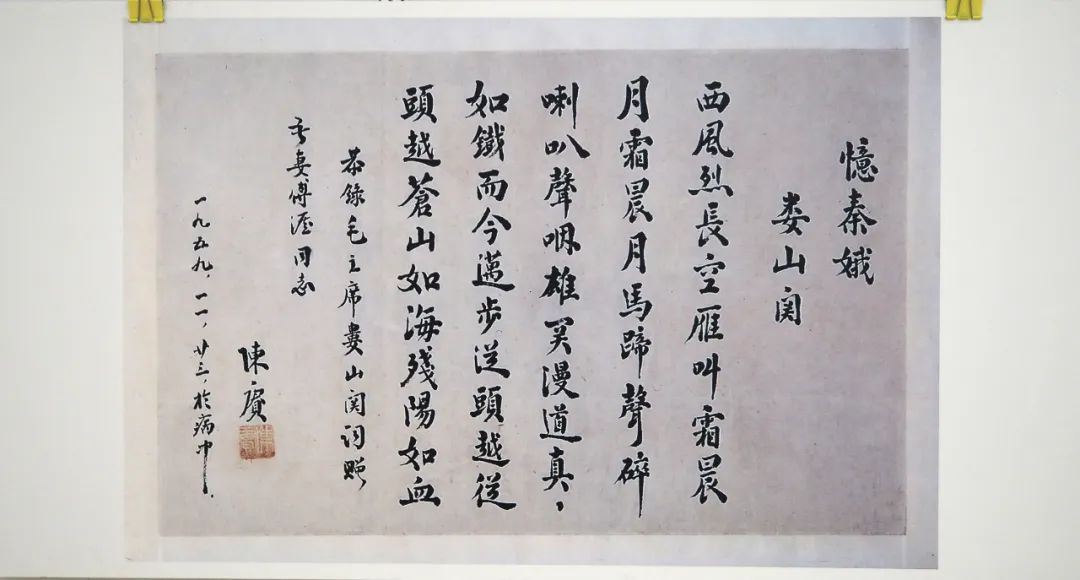 憶秦娥
娄山関
西風烈長空雁叫霜晨
月霜晨月馬蹄聲碎
喇叭聲咽雄関漫道真，
如鐵而今邁步從頭越從
頭越蒼山如海殘陽如血
恭錄毛主席婁山関词贈
吾妻傅涯同志
陳賡
一九五九、一一、廿三、於病中